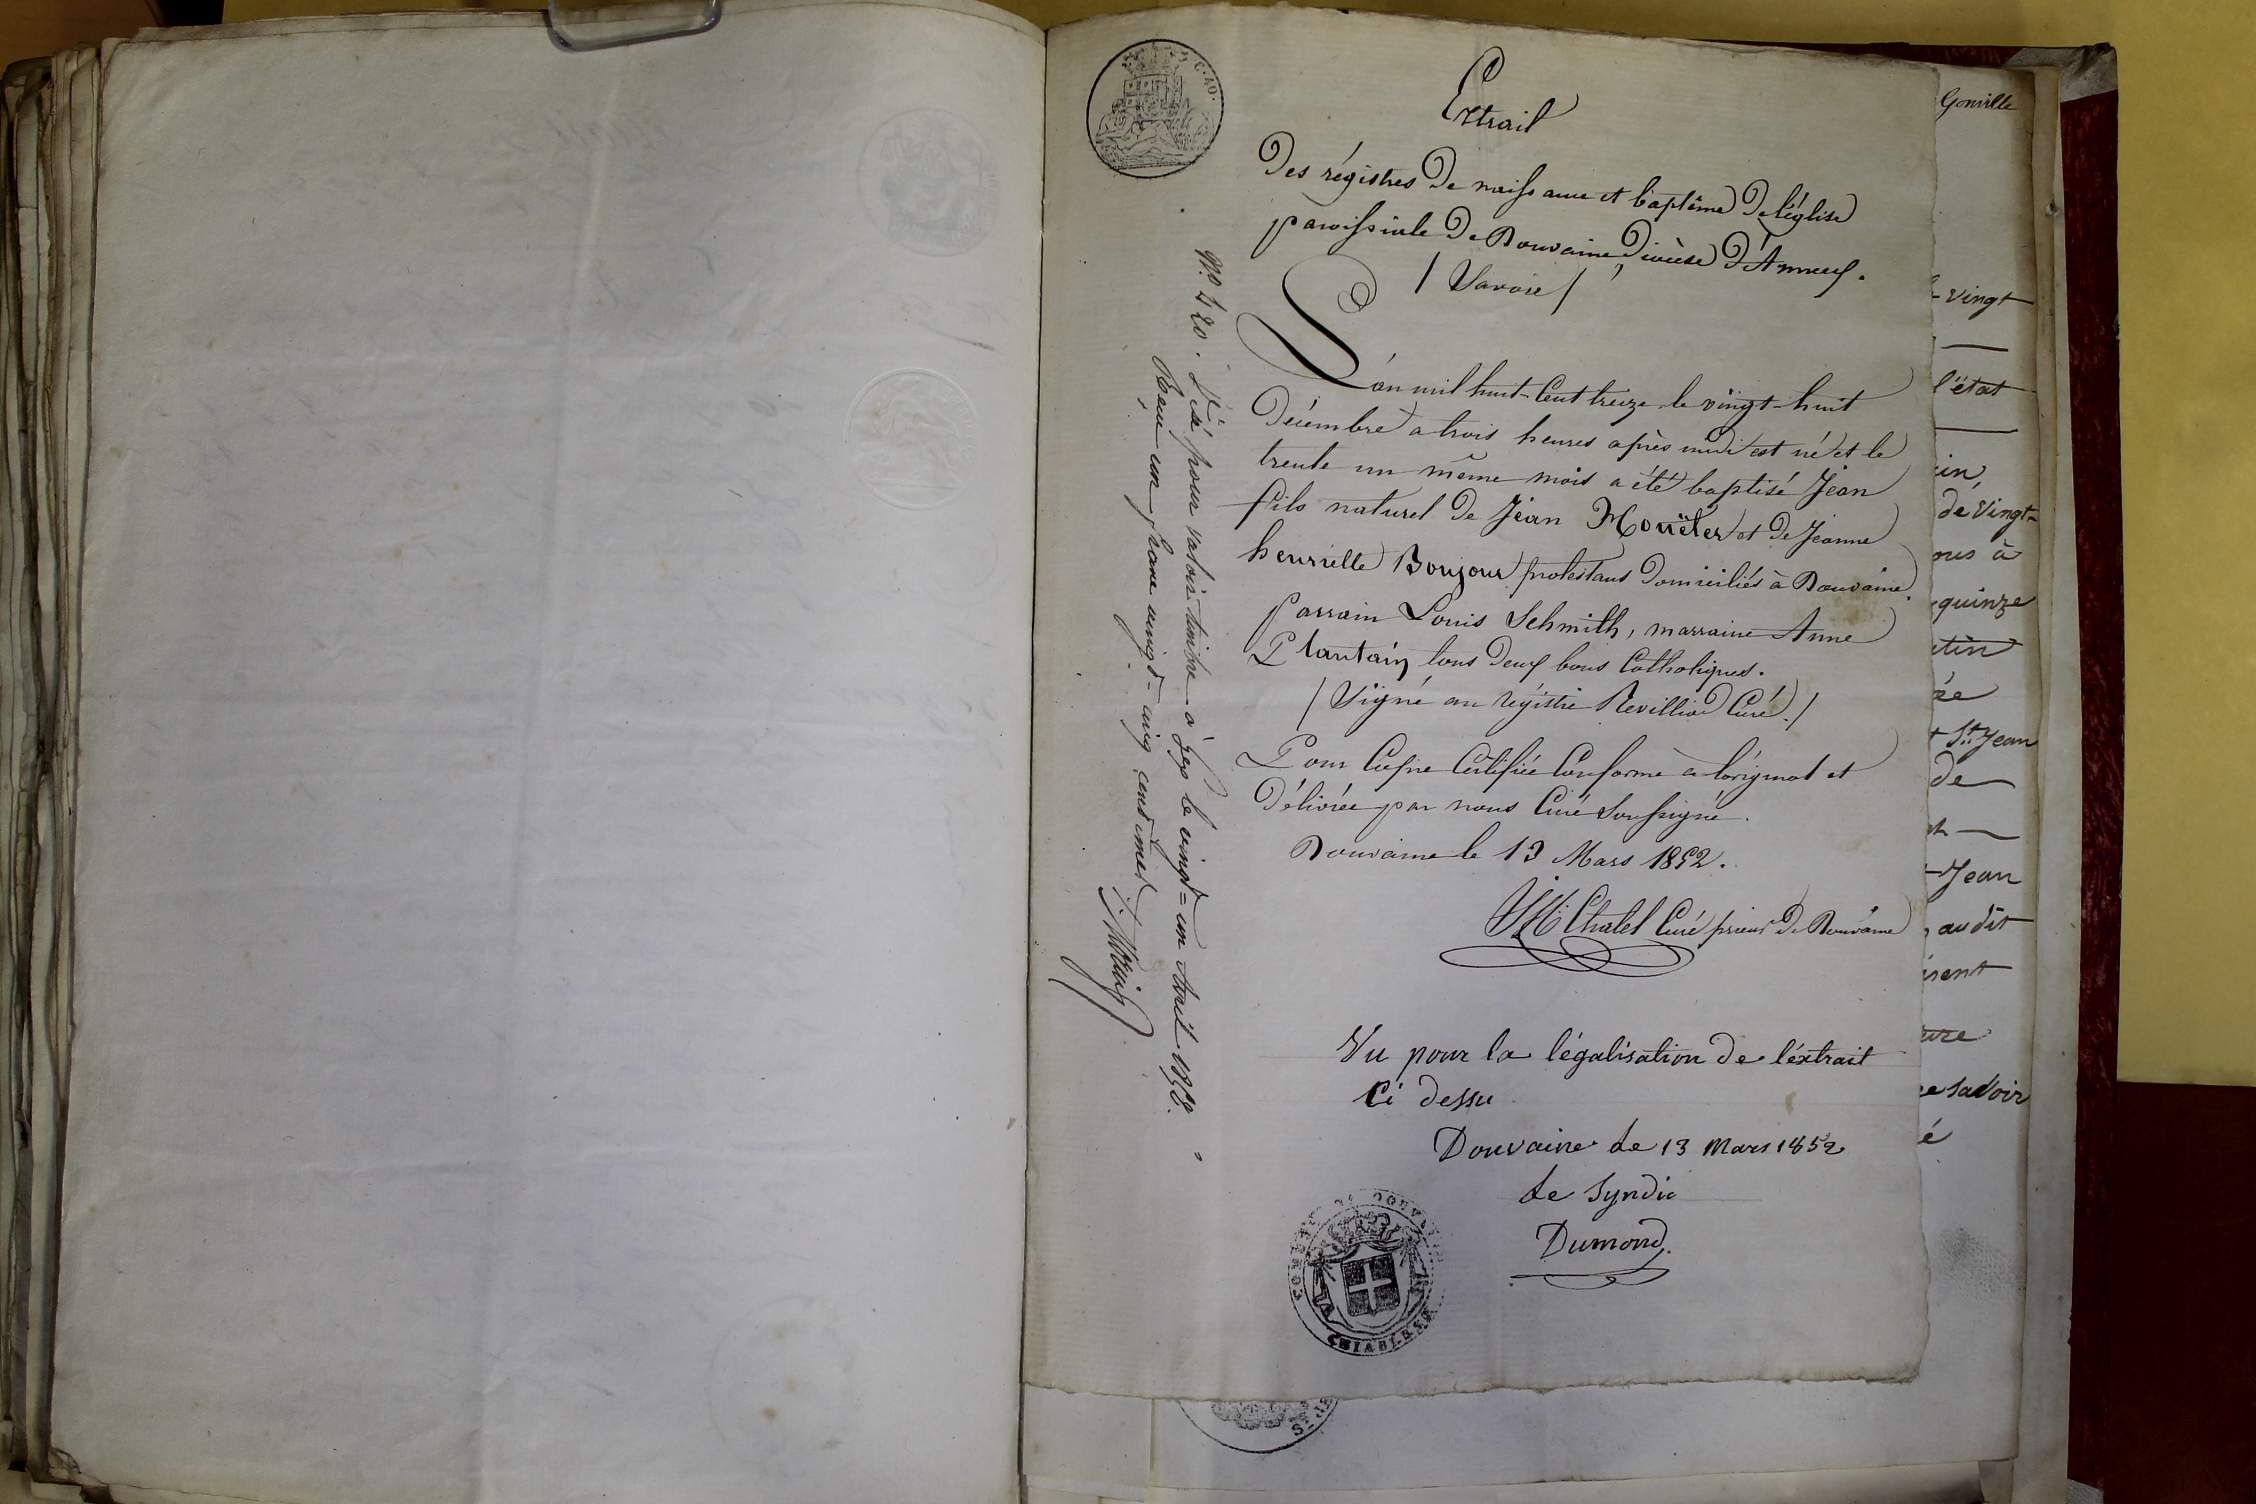 C. 40.
Extrait
Des régistres de naissance et baptême de l'église
paroissiale de Douvaine, Diocèse d'Annecy.
/ Savoie /
L'an mil huit-Cent treize le vingt-huit
Décembre a trois heures après midi est né et le
trente un même mois a été baptisé Jean
fils naturel de Jean Mouëter et de Jeanne
henriette Bonjour protestans domiciliés à Douvaine.
parrain Louis Schmith, marraine Anne
Plantain tous deux bons Catholiques.
/ Signé au régistre Revilliod Curé. /
Pour Copie Certifiée Conforme à l'original et
Délivrée par nous Curé Soussigné.
Douvaine le 13 Mars 1852.
Chatel Curé prieur de Douvaine
Vu pour la légalisation de l'extrait
Ci dessu
Douvaine le 13 Mars 1852
Le Syndic
Dumond.
CHIABLESE
N.º 420. Visé pour valoir timbre à Gex le vingt-un Avril 1858.
Reçu un franc vingt-cinq centimes
Gonville
vingt
l'état
in,
de Vingt-
ous à
quinze
ée
St. Jean
de
Jean
audit
ésent
ure
savoir
é